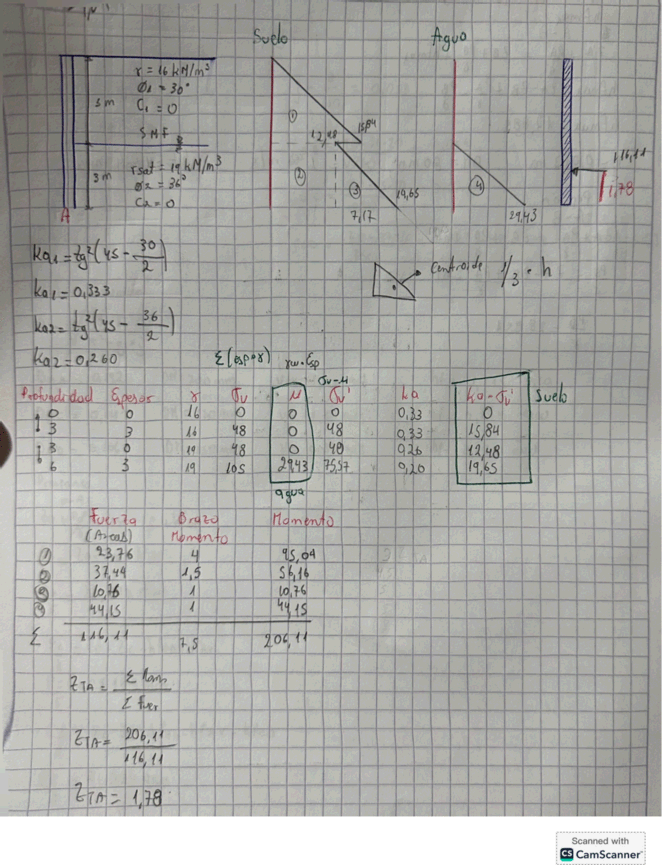 Suelo
Agua
r = 16 kN/m³
Ø1 = 30°
C1 = 0
3 m
SNF
3 m
rsat = 19 kN/m³
Ø2 = 36°
C2 = 0
A
①
15,84
12,48
②
③
19,65
7,17
④
29,43
116,11
1,78
ka1 = tg²(45 - 30/2)
ka1 = 0,333
ka2 = tg²(45 - 36/2)
ka2 = 0,260
Centroide 1/3 · h
Σ(esp*r) rw·Esp
σv-μ
Profundidad Espesor r σv μ σv' ka ka-σv' Suelo
0 0 16 0 0 0 0,33 0
3 3 16 48 0 48 0,33 15,84
3 0 19 48 0 48 0,26 12,48
6 3 19 105 29,43 75,57 0,20 19,65
agua
Fuerza Brazo Momento
(Areas) Momento
① 23,76 4 95,04
② 37,44 1,5 56,16
10,76 1 10,76
44,15 1 44,15
Σ 116,11 7,5 206,11
ZTA = Σ Mom / Σ Fuer
ZTA = 206,11 / 116,11
ZTA = 1,78
Scanned with
CS CamScanner